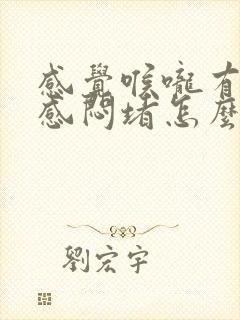 感覺喉嚨有
感悶堵怎麼
劉宏宇